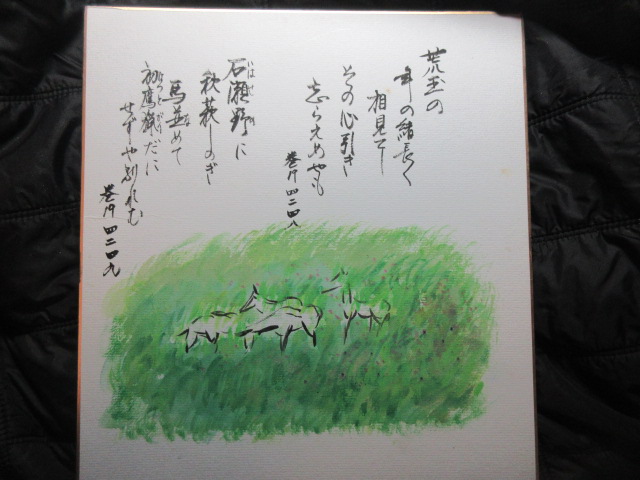 荒玉の
年の緒長く
相見てし
その心引き
忘らえめやも
巻19 四二四八
いはせの
石瀬野に
秋萩しのぎ
な
馬並めて
はつとがり
初鷹猟だに
せずや別れむ
巻19 四二四九